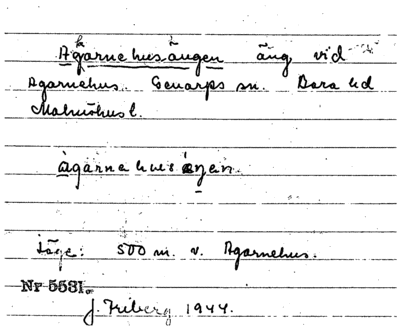 Agarnehusängen äng vid
Agarnehus. Genarps sn. Bara hd
Malmöhus l.
àgarnehusæŋen.
Läge: 500 m. v. Agarnehus.
Nr 5531.
J. Friberg 1944.